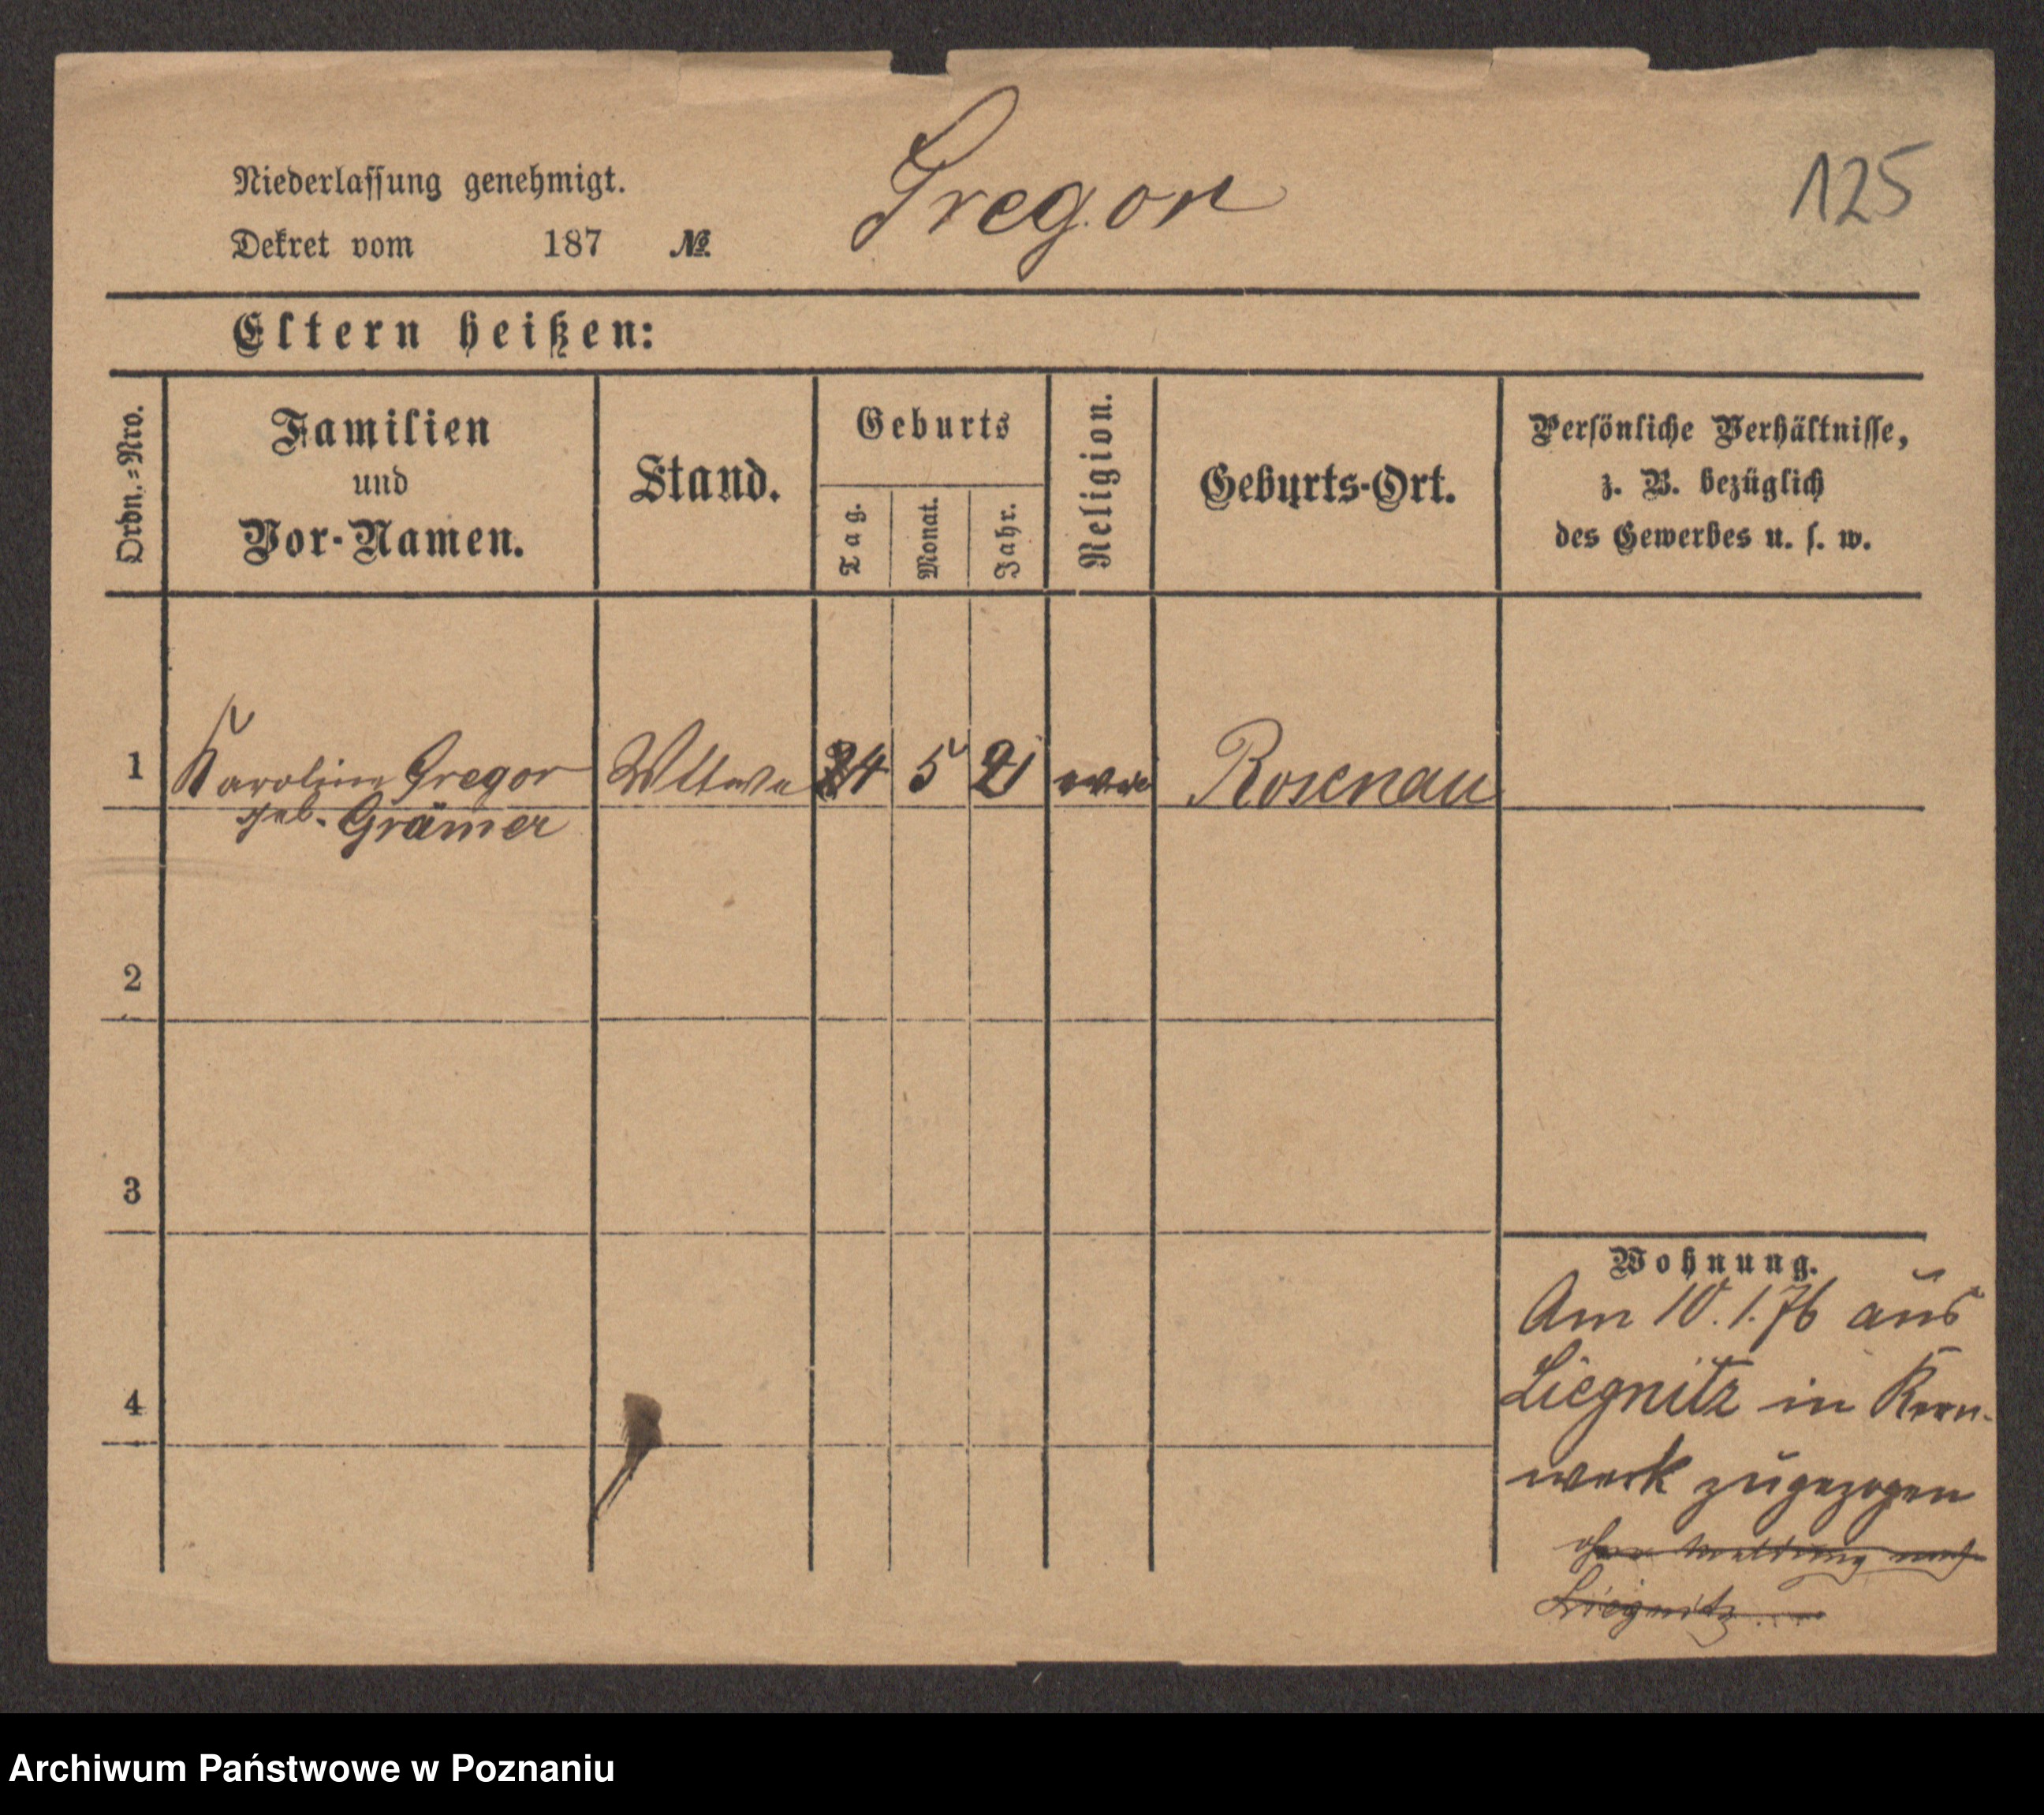 Niederlassung genehmigt.
Dekret vom 187 №
Gregor
125
Eltern heißen:
Ordn.=Nro.
Familien
und
Vor-Namen.
Stand.
Geburts
Tag.
Monat.
Jahr.
Religion.
Geburts-Ort.
Persönliche Verhältnisse,
z. B. bezüglich
des Gewerbes u. s. w.
1 Karoline Gregor 5 21 Rosenau
geb. Grämer
2
3
4
Wohnung.
Am 10.1.76 aus
Liegnitz in Kern-
werk zugezogen
ohne Meldung nach
Liegnitz
Archiwum Państwowe w Poznaniu